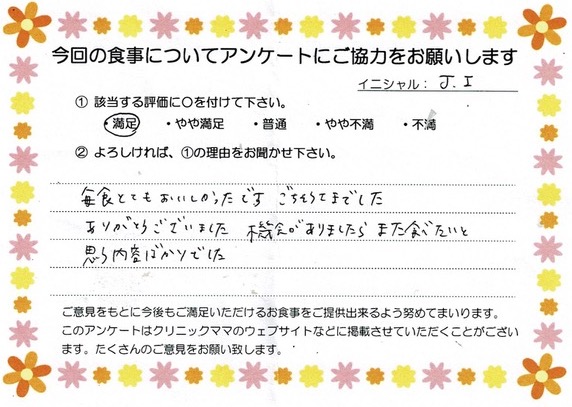 今回の食事についてアンケートにご協力をお願いします
イニシャル： J.I
① 該当する評価に〇を付けて下さい。
・満足 ・やや満足 ・普通 ・やや不満 ・不満
② よろしければ、①の理由をお聞かせ下さい。
毎食とてもおいしかったです ごちそうさまでした
ありがとうございました 機会がありましたら また食べたいと
思う内容ばかりでした
ご意見をもとに今後もご満足いただけるお食事をご提供出来るよう努めてまいります。
このアンケートはクリニックママのウェブサイトなどに掲載させていただくことがござい
ます。たくさんのご意見をお願い致します。